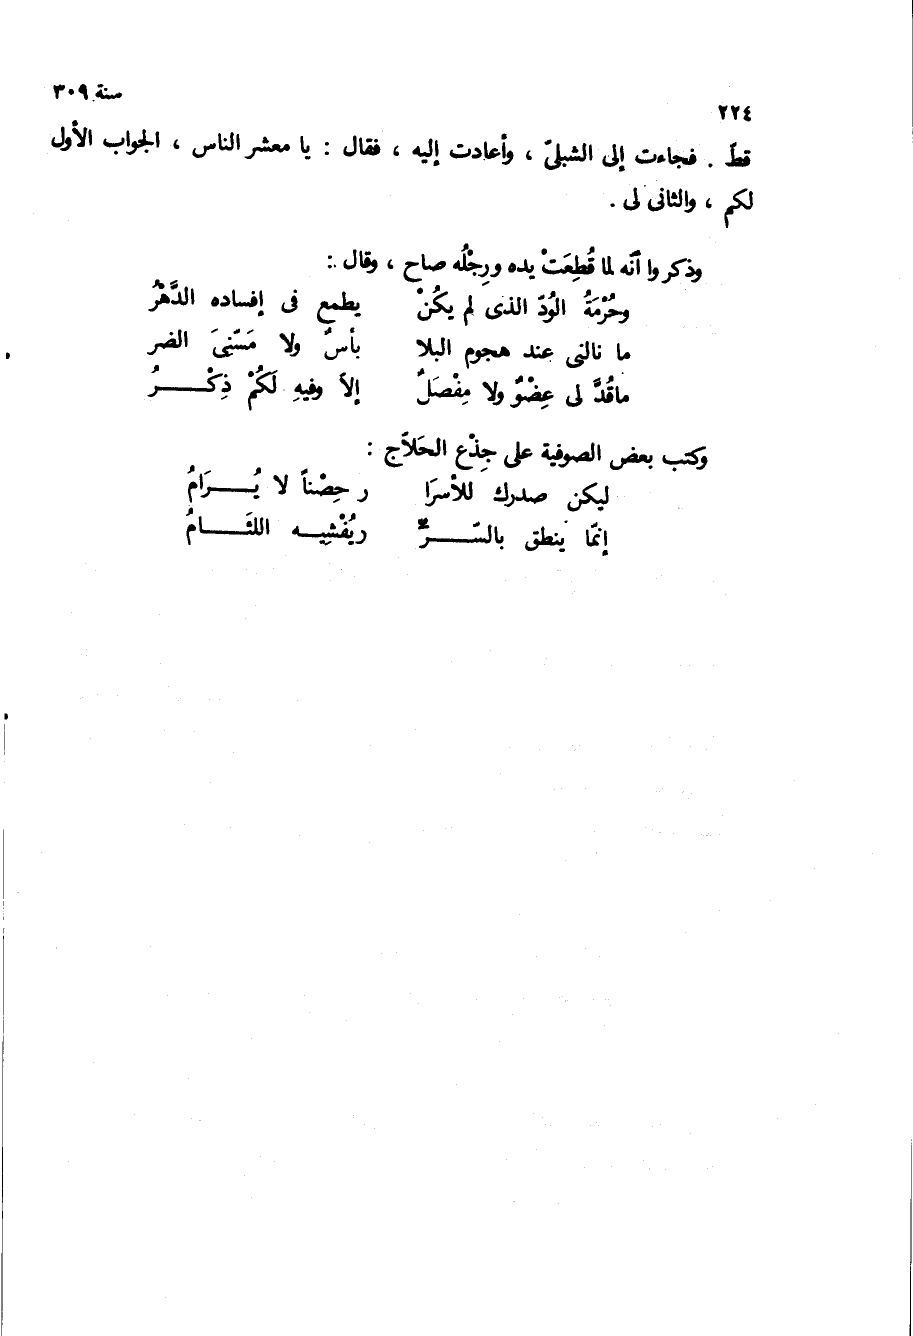 سنة ٣٠٩
٢٢٤
قطّ . فجاءت إلى الشبلىّ ، وأعادت إليه ، فقال : يا معشر الناس ، الجواب الأول
لكم ، والثانى لى .
وذكروا أنّه لما قُطِعَتْ يده ورِجْلُه صاح ، وقال :
وحُرْمَةُ الوُدّ الذى لم يكُنْ يطمع فى إفساده الدَّهْرُ
ما نالنى عند هجوم البلا بأسٌ ولا مَسّنِىَ الضر
ماقُدَّ لى عِضْوٌ ولا مِفْصَلٌ إلاّ وفيهِ لَكُمْ ذِكْــــرُ
وكتب بعض الصوفية على جِذْع الحَلاَّج :
ليكن صدرك للأسرَا ر حِصْناً لا يُــــرَامُ
إنمّا ينطق بالسّــــرّ ريُفْشِيــه اللئَــــامُ